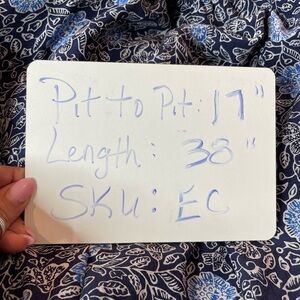 Pit to Pit: 17"
Length: 38"
SKU: EC